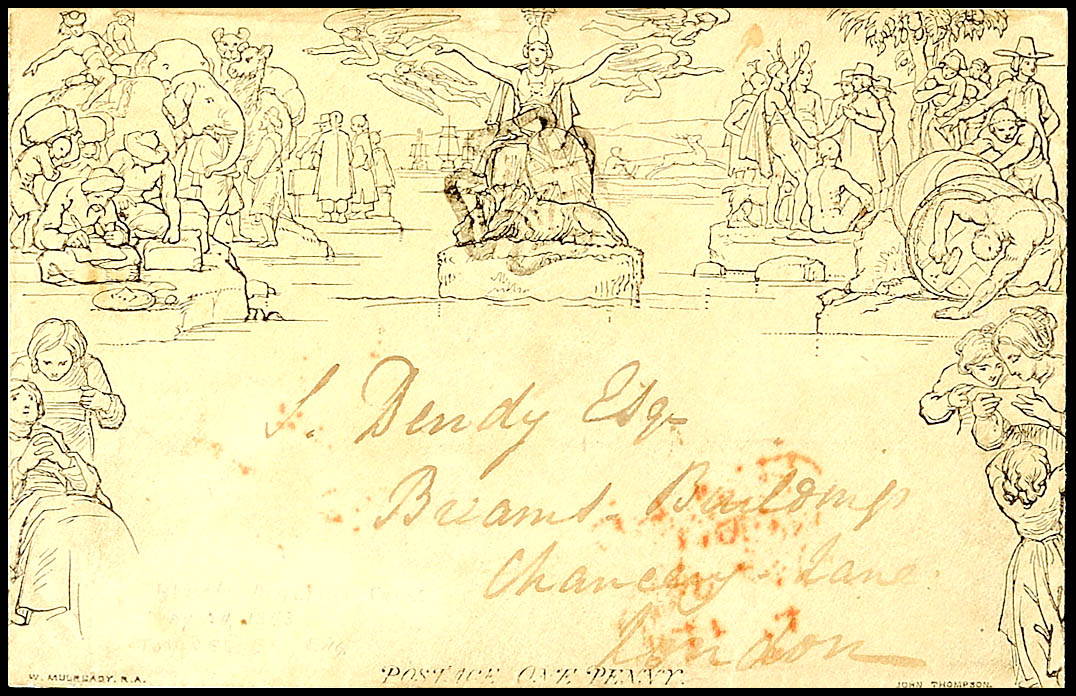 S. Dendy Esq
Breams Buildings
Chancery Lane.
London
POSTAGE ONE PENNY.
W. MULREADY. R.A.
JOHN THOMPSON.